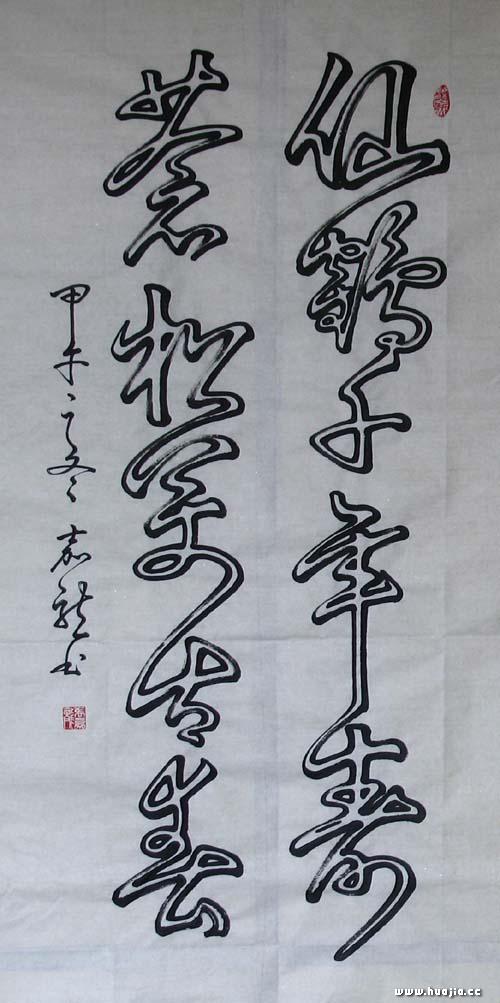 仙鹤千年寿
苍松万古春
甲午之冬 嘉龙书
www.huajia.cc